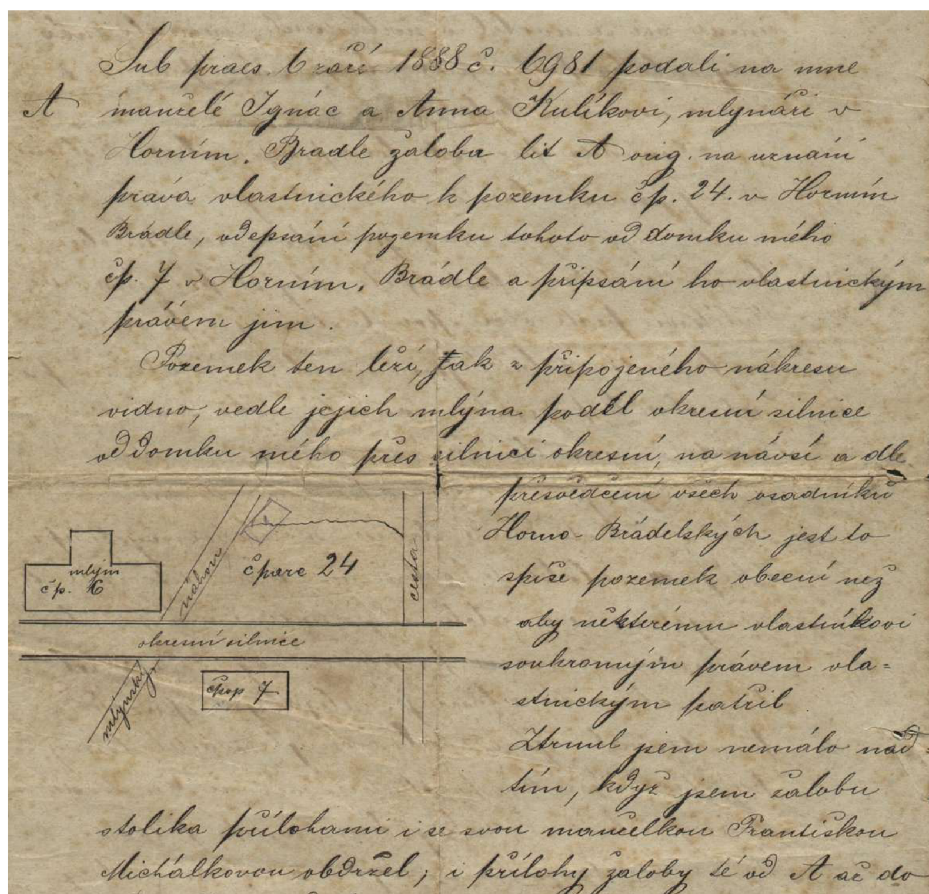 Sub praes. 6 září 1888 č. 6981 podali na mne
A manželé Ignác a Anna Kulíkovi, mlynáři v
Horním. Bradle žaloba lit A orig. na uznání
práva vlastnického k pozemku čp. 24. v Horním
Bradle, odepsání pozemku tohoto od domku mého
čp. 7 v Horním. Brádle a připsání ho vlastnickým
právem jim.
Pozemek ten leží, jak z připojeného nákresu
vidno, vedle jejich mlýna podél okresní silnice
od domku mého přes silnici okresní, na návsi a dle
přesvědčení všech osadníků
Horno-Brádelských jest to
spíše pozemek obecní než
aby některému vlastníkovi
soukromým právem vla=
stnickým patřil
Ztrnul jsem nemálo nad
tím, když jsem žalobu
stolika přílohami i se svou manželkou Františkou
Michálkovou obdržel; i přílohy žaloby té od A až do
mlýn
čp. 6
náhon
čparc 24
cesta
okresní silnice
mlýnský
čpop 7